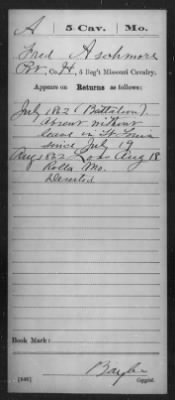 A 5 Cav. Mo.
Fred Aschmore
Pvt., Co. H, 5 Reg't Missouri Cavalry.
Appears on Returns as follows:
July 1862 (Battalion).
absent without
leave in St. Louis
since July 19
Aug 1862 Loss Aug 18
Rolla Mo.
Deserted
Book Mark:
(546)
Copyist.